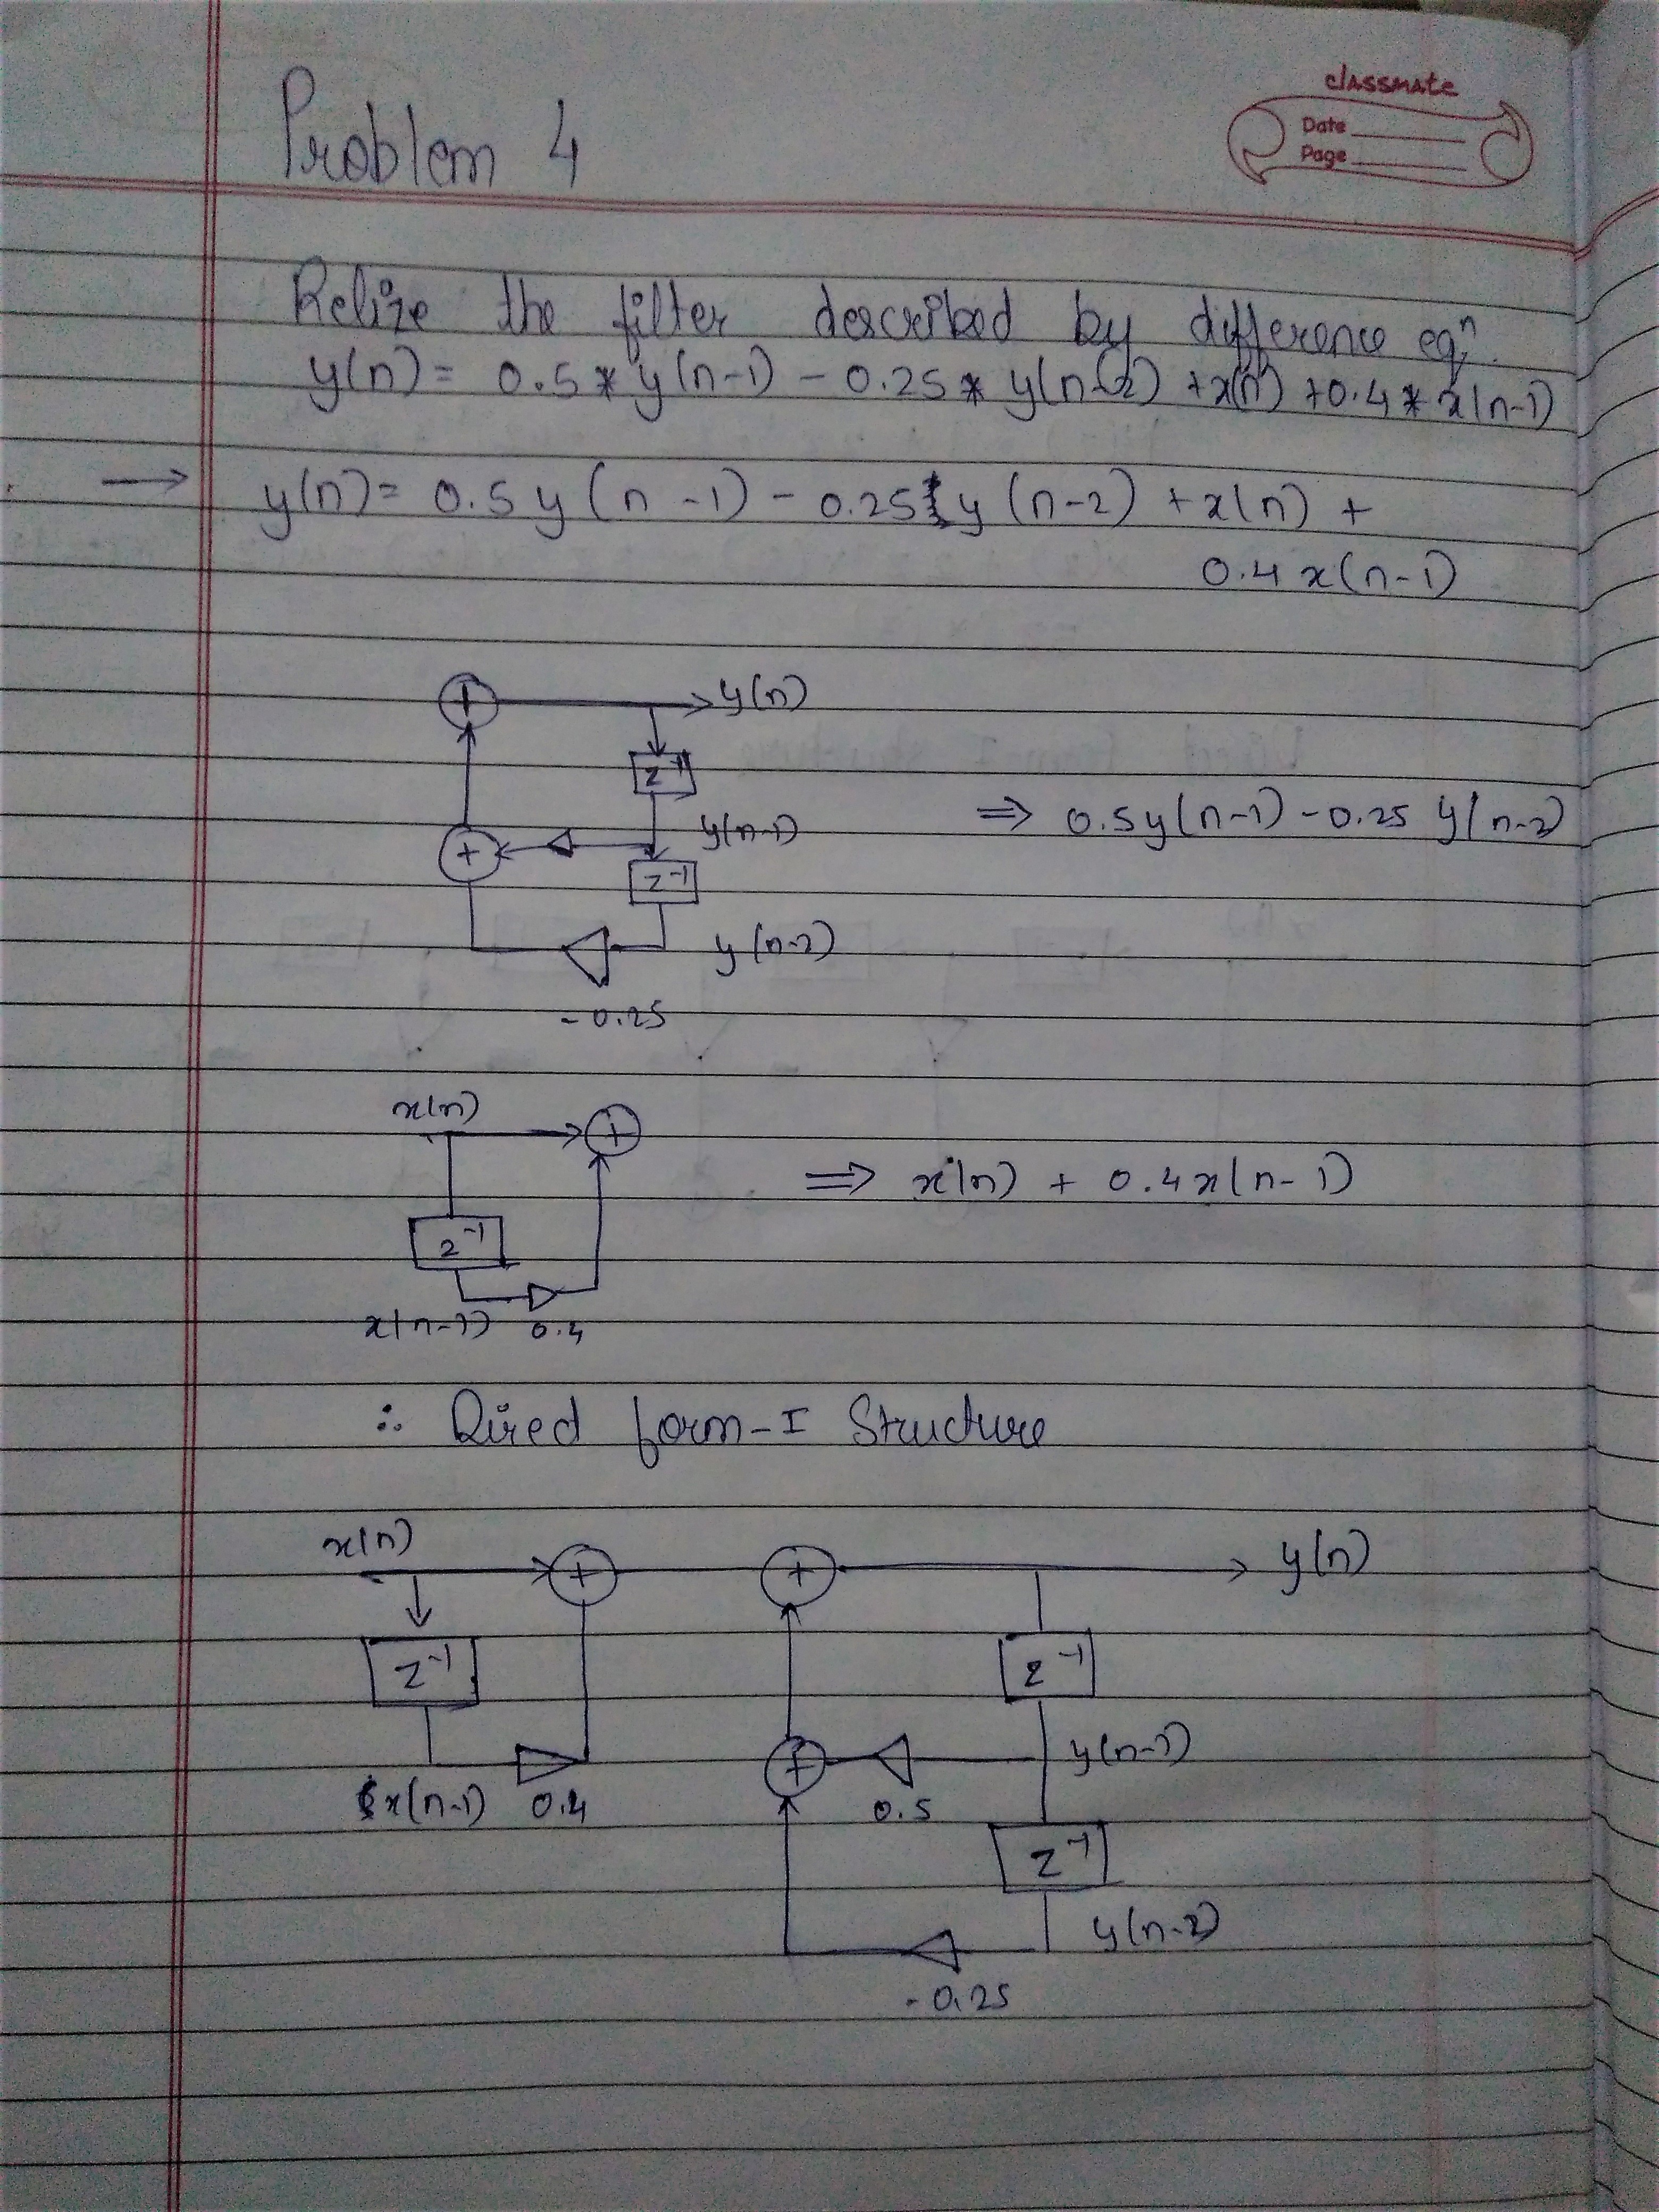 classmate
Date
Page
Problem 4
Relize the filter described by difference eqⁿ.
y(n) = 0.5 * y(n-1) - 0.25 * y(n-2) + x(n) + 0.4 * x(n-1)
→ y(n) = 0.5 y (n - 1) - 0.25 y (n-2) + x(n) +
0.4 x(n-1)
+ y(n)
z⁻¹
y(n-1) ⇒ 0.5y(n-1) - 0.25 y(n-2)
+
z⁻¹
y(n-2)
-0.25
x(n) +
⇒ x(n) + 0.4x(n-1)
z⁻¹
x(n-1) 0.4
∴ Dired form-I Structure
x(n) + + y(n)
z⁻¹ z⁻¹
+ y(n-1)
x(n-1) 0.4 0.5
z⁻¹
y(n-2)
-0.25